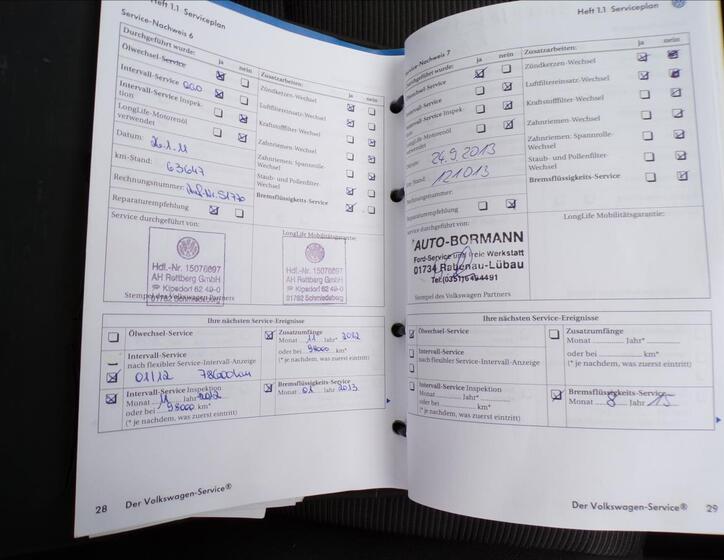 Heft 1.1 Serviceplan
Service-Nachweis 6
Durchgeführt wurde: ja nein
Ölwechsel-Service
Intervall-Service QGO
Intervall-Service Inspek-
tion
LongLife-Motorenöl
verwendet
Datum: 26.1.11
km-Stand: 63647
Rechnungsnummer:
Reparaturempfehlung
Service durchgeführt von:
Hdl.-Nr. 15076897
AH Rettberg GmbH
Kipsdorf 62 49-0
01762 Schmiedeberg
Stempel des Volkswagen Partners
Zusatzarbeiten: ja nein
Zündkerzen-Wechsel
Luftfiltereinsatz-Wechsel
Kraftstofffilter-Wechsel
Zahnriemen-Wechsel
Zahnriemen-Spannrolle-
Wechsel
Staub- und Pollenfilter-
Wechsel
Bremsflüssigkeits-Service
LongLife Mobilitätsgarantie:
Hdl.-Nr. 15076897
AH Rettberg GmbH
Kipsdorf 62 49-0
01762 Schmiedeberg
Ihre nächsten Service-Ereignisse
Ölwechsel-Service
Intervall-Service
nach flexibler Service-Intervall-Anzeige
01/12 78000km
Intervall-Service Inspektion
Monat 11 Jahr 2012
oder bei 98000 km*
(* je nachdem, was zuerst eintritt)
Zusatzumfänge
Monat 11 Jahr 2012
oder bei 98000 km*
(* je nachdem, was zuerst eintritt)
Bremsflüssigkeits-Service
Monat 01 Jahr 2013
28 Der Volkswagen-Service®
Heft 1.1 Serviceplan
Service-Nachweis 7
Durchgeführt wurde: ja nein
Ölwechsel-Service
Intervall-Service
Intervall-Service Inspek-
LongLife-Motorenöl
verwendet
24.9.2013
km-Stand: 121013
Rechnungsnummer:
Reparaturempfehlung
Service durchgeführt von:
AUTO-BORMANN
Ford-Service und freie Werkstatt
01734 Rabenau-Lübau
Tel.(0351)6494491
Stempel des Volkswagen Partners
Zusatzarbeiten: ja nein
Zündkerzen-Wechsel
Luftfiltereinsatz-Wechsel
Kraftstofffilter-Wechsel
Zahnriemen-Wechsel
Zahnriemen: Spannrolle-
Wechsel
Staub- und Pollenfilter-
Wechsel
Bremsflüssigkeits-Service
LongLife Mobilitätsgarantie:
Ihre nächsten Service-Ereignisse
Ölwechsel-Service
Intervall-Service
nach flexibler Service-Intervall-Anzeige
Intervall-Service Inspektion
Monat Jahr*
oder bei km*
(* je nachdem, was zuerst eintritt)
Zusatzumfänge
Monat Jahr*
oder bei km*
(* je nachdem, was zuerst eintritt)
Bremsflüssigkeits-Service
Monat 8 Jahr 15
Der Volkswagen-Service® 29